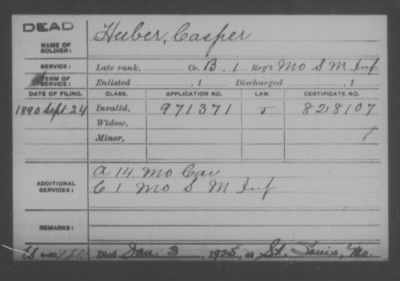 DEAD
NAME OF SOLDIER: Huber, Casper
SERVICE: Late rank, Co. B, 1 Reg't Mo S M Inf
TERM OF SERVICE: Enlisted , 1 Discharged , 1
DATE OF FILING. CLASS. APPLICATION NO. LAW. CERTIFICATE NO.
1890 Sept 24 Invalid, 971371 828107
Widow,
Minor,
ADDITIONAL SERVICES: A 14 Mo Cav
C 1 Mo S M Inf
REMARKS:
Died Jan. 3, 1925, at St. Louis, Mo.